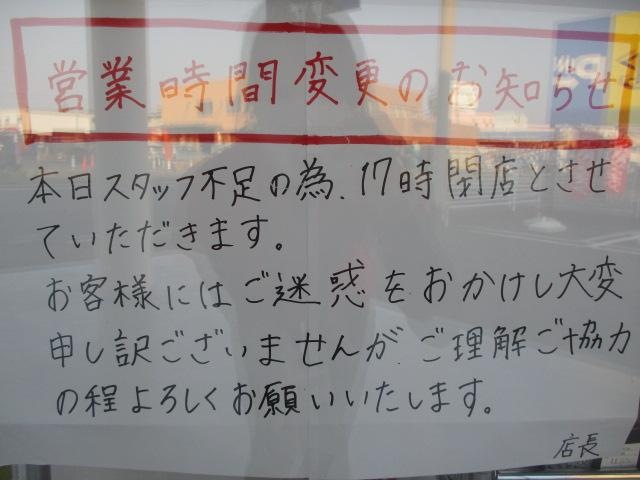 営業時間変更のお知らせ
本日スタッフ不足の為、17時閉店とさせ
ていただきます。
お客様にはご迷惑をおかけし大変
申し訳ございませんが、ご理解ご協力
の程よろしくお願いいたします。
店長